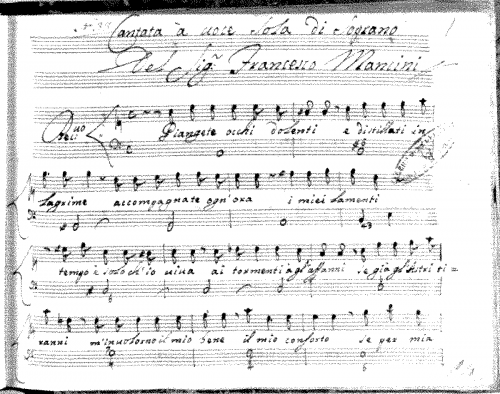 Cantata à voce sola di Soprano
Del Sig.r Francesco Mancini
Piangete occhi dolenti e distillati in
lagrime accompagnate ogn'ora i miei lamenti
tempo è solo ch'io viva ai tormenti agl'affanni se già gl'astri ti=
ranni m'involorno il mio bene il mio conforto se per mia